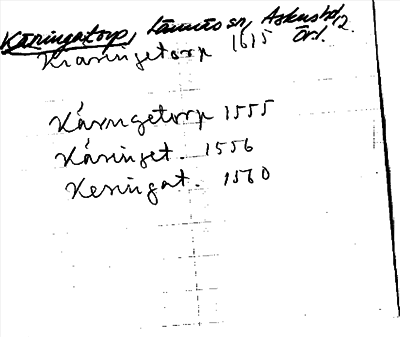 Käringatorp, Lännäs sn, Askers hd, Örl.
Kiäringetorp 1615 12.
Káringetorp 1555
Káringet. 1556
Keringat. 1560